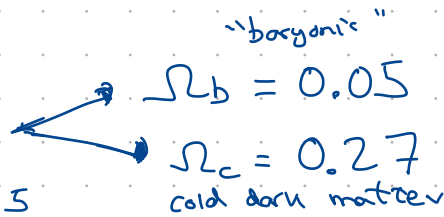 "baryonic"
Ω_b = 0.05
Ω_c = 0.27
5 cold dark matter